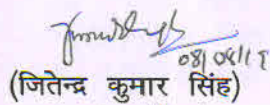 08/08/18
(जितेन्द्र कुमार सिंह)